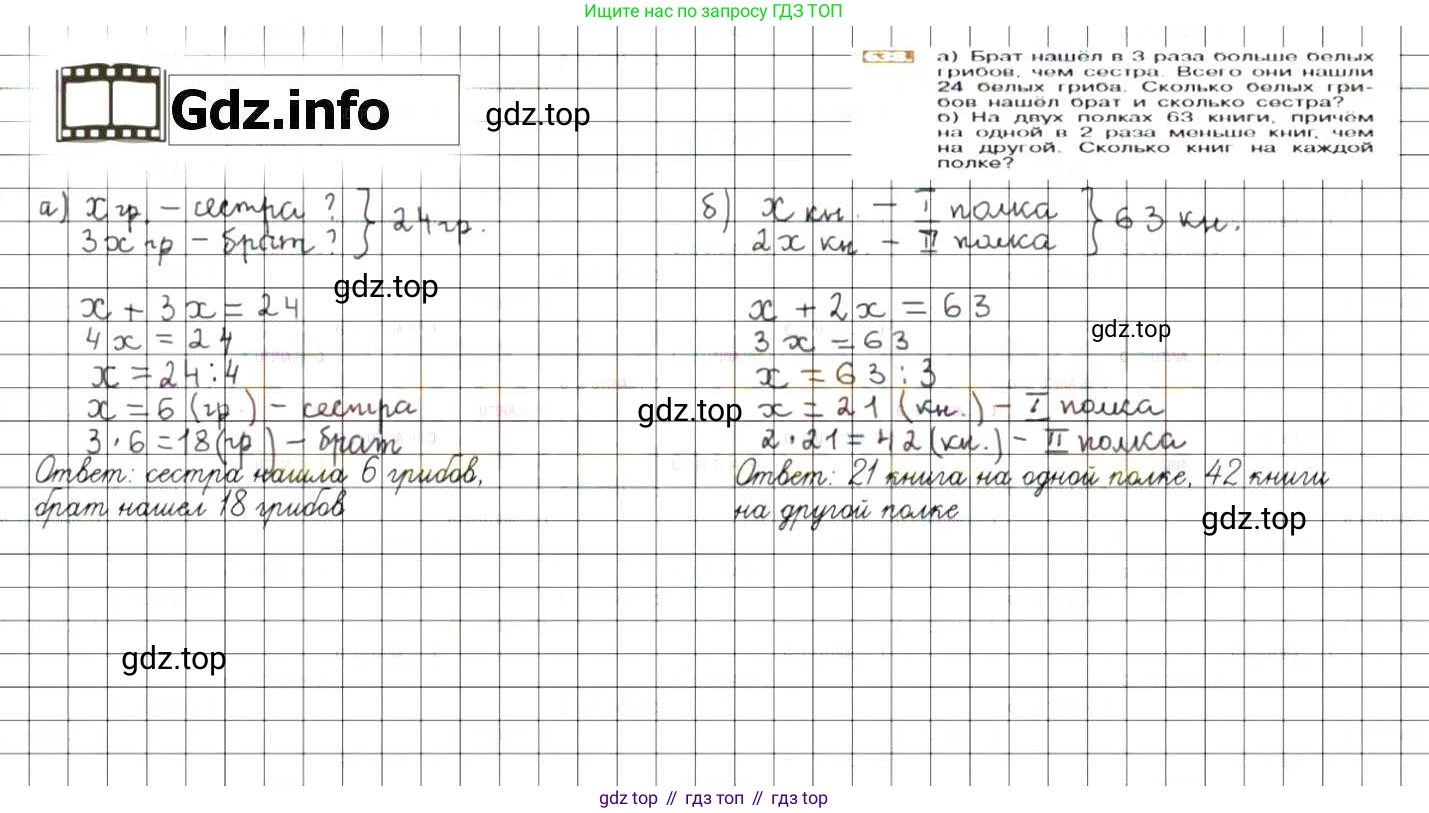 Ищите нас по запросу ГДЗ ТОП
Gdz.info
gdz.top
а) Брат нашёл в 3 раза больше белых
грибов, чем сестра. Всего они нашли
24 белых гриба. Сколько белых гри-
бов нашёл брат и сколько сестра?
б) На двух полках 63 книги, причём
на одной в 2 раза меньше книг, чем
на другой. Сколько книг на каждой
полке?
а) x гр. – сестра ?
3x гр – брат ?
} 24 гр.
gdz.top
x + 3x = 24
4x = 24
x = 24 : 4
x = 6 (гр.) – сестра
3 · 6 = 18 (гр.) – брат
Ответ: сестра нашла 6 грибов,
брат нашел 18 грибов
б) x кн. – I полка
2x кн. – II полка
} 63 кн.
x + 2x = 63
gdz.top
3x = 63
x = 63 : 3
gdz.top
x = 21 (кн.) – I полка
2 · 21 = 42 (кн.) – II полка
Ответ: 21 книга на одной полке, 42 книги
на другой полке
gdz.top
gdz.top
gdz top // гдз топ // gdz top